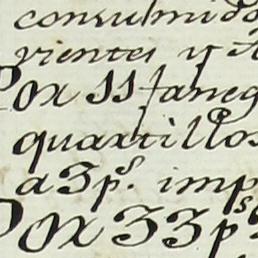 consumido
vientes y A
Por 11 faneg
quartillos
a 3 p.s imp
Por 33 p.s